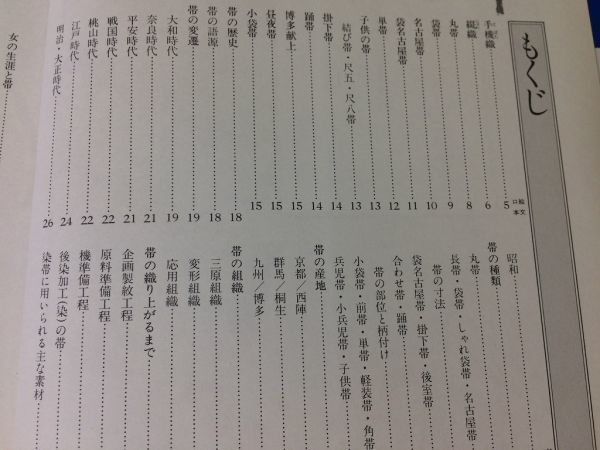 もくじ
口絵
本文
手機織……5
綴織……6
丸帯……8
袋帯……9
名古屋帯……10
袋名古屋帯……11
単帯……12
子供の帯……13
結び帯・尺五・尺八帯……13
掛下帯……14
踊帯……14
博多献上……15
昼夜帯……15
小袋帯……15
帯の歴史……18
帯の語源……18
帯の変遷……19
大和時代……19
奈良時代……21
平安時代……21
戦国時代……22
桃山時代……22
江戸時代……24
明治・大正時代……26
昭和
帯の種類
丸帯
長帯・袋帯・しゃれ袋帯・名古屋帯
帯の寸法
袋名古屋帯・掛下帯・後室帯
合わせ帯・踊帯
帯の部位と柄付け
小袋帯・前帯・単帯・軽装帯・角帯
兵児帯・小兵児帯・子供帯
帯の産地
京都／西陣
群馬／桐生
九州／博多
帯の組織
三原組織
変形組織
応用組織
帯の織り上がるまで
企画製紋工程
原料準備工程
機準備工程
後染加工(染)の帯
染帯に用いられる主な素材
女の生涯と帯